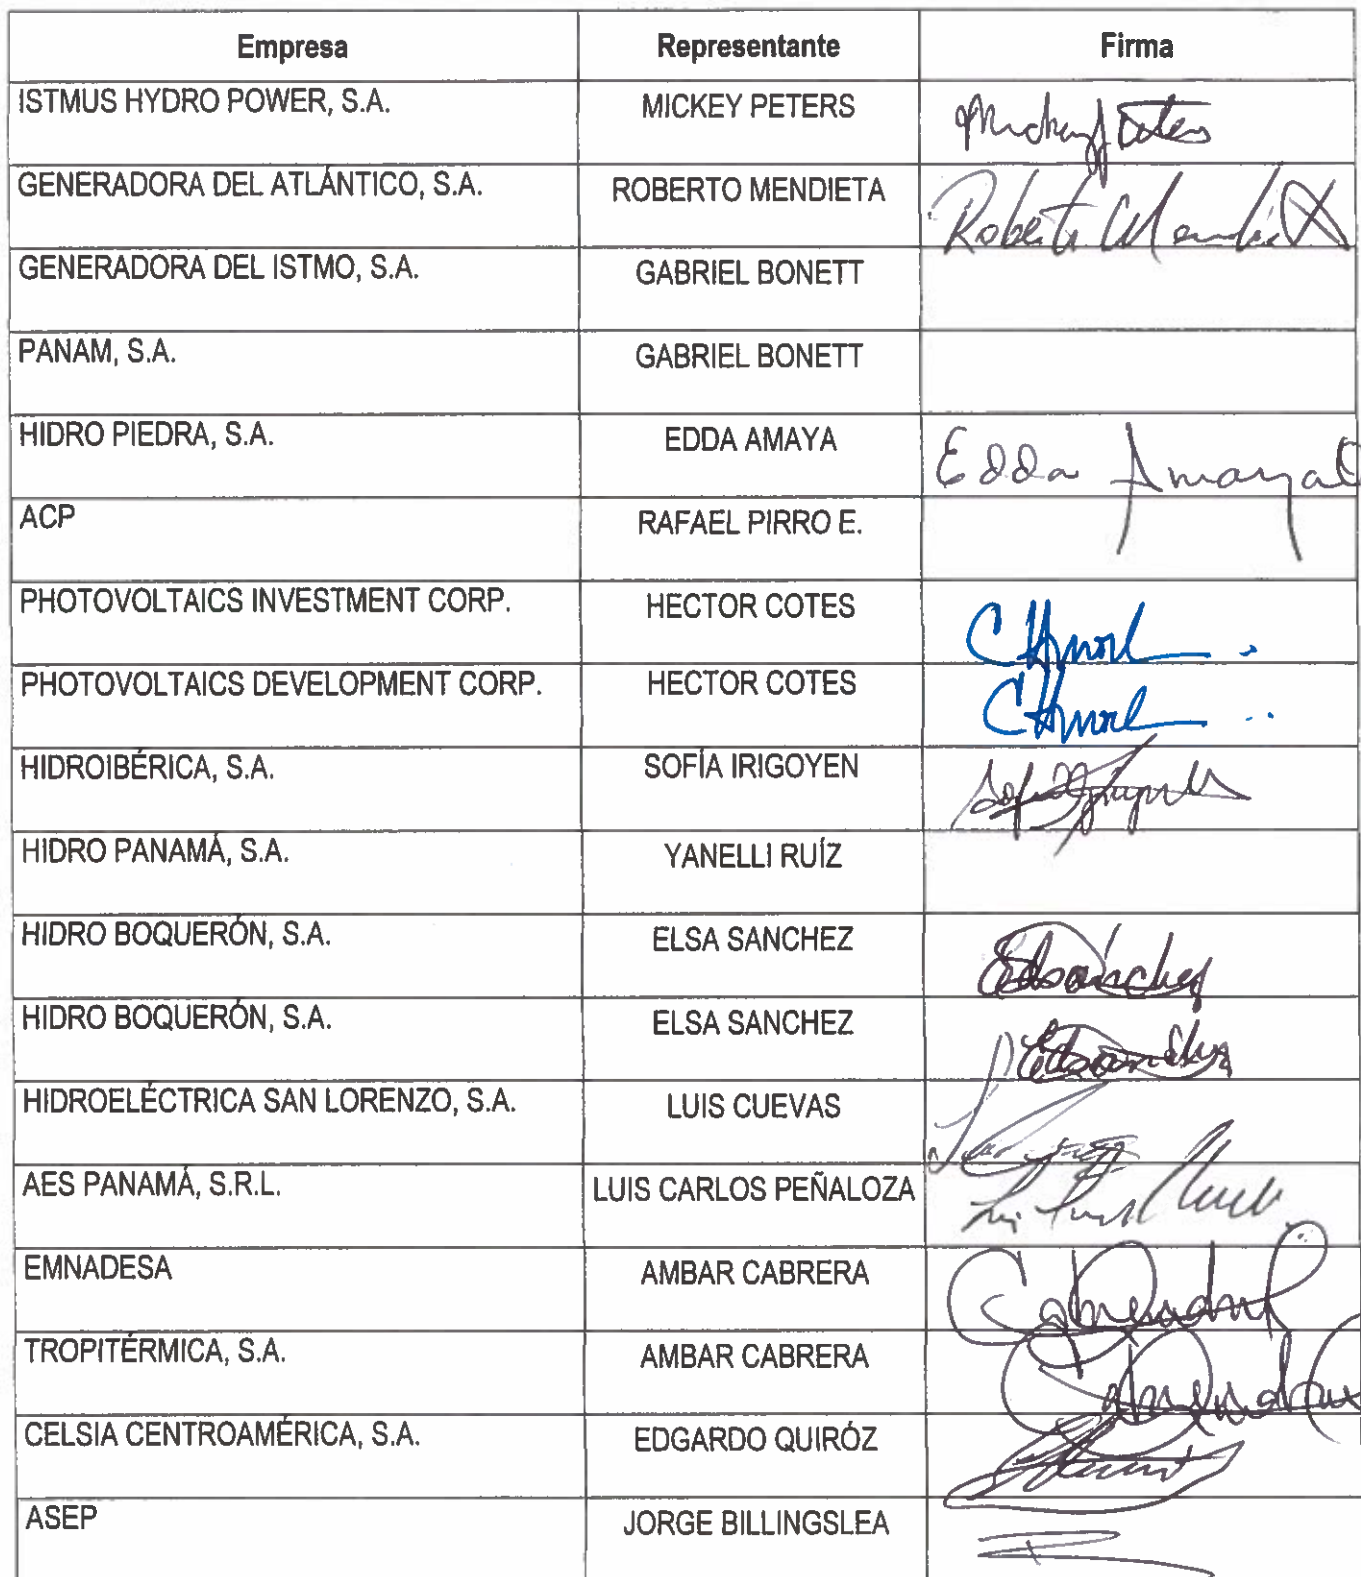 Empresa Representante Firma
ISTMUS HYDRO POWER, S.A. MICKEY PETERS Mickey Peters
GENERADORA DEL ATLÁNTICO, S.A. ROBERTO MENDIETA Roberto Mendieta
GENERADORA DEL ISTMO, S.A. GABRIEL BONETT
PANAM, S.A. GABRIEL BONETT
HIDRO PIEDRA, S.A. EDDA AMAYA Edda Amaya
ACP RAFAEL PIRRO E.
PHOTOVOLTAICS INVESTMENT CORP. HECTOR COTES
PHOTOVOLTAICS DEVELOPMENT CORP. HECTOR COTES
HIDROIBÉRICA, S.A. SOFÍA IRIGOYEN
HIDRO PANAMÁ, S.A. YANELLI RUÍZ
HIDRO BOQUERÓN, S.A. ELSA SANCHEZ ESánchez
HIDRO BOQUERÓN, S.A. ELSA SANCHEZ
HIDROELÉCTRICA SAN LORENZO, S.A. LUIS CUEVAS
AES PANAMÁ, S.R.L. LUIS CARLOS PEÑALOZA
EMNADESA AMBAR CABRERA
TROPITÉRMICA, S.A. AMBAR CABRERA
CELSIA CENTROAMÉRICA, S.A. EDGARDO QUIRÓZ
ASEP JORGE BILLINGSLEA